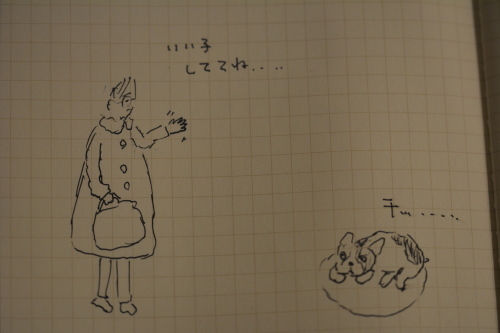 いい子
しててね....
チッ.....